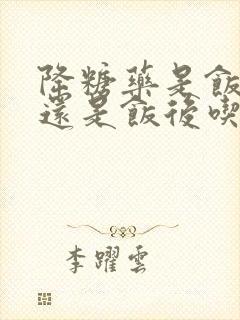 降糖藥是飯
還是飯後喫
李躍雲